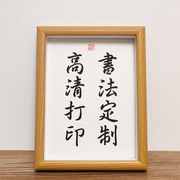 書法定制
高清打印